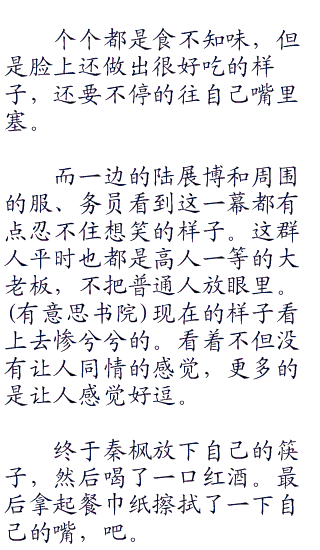 个个都是食不知味，但
是脸上还做出很好吃的样
子，还要不停的往自己嘴里
塞。
而一边的陆展博和周围
的服、务员看到这一幕都有
点忍不住想笑的样子。这群
人平时也都是高人一等的大
老板，不把普通人放眼里。
(有意思书院)现在的样子看
上去惨兮兮的。看着不但没
有让人同情的感觉，更多的
是让人感觉好逗。
终于秦枫放下自己的筷
子，然后喝了一口红酒。最
后拿起餐巾纸擦拭了一下自
己的嘴，吧。